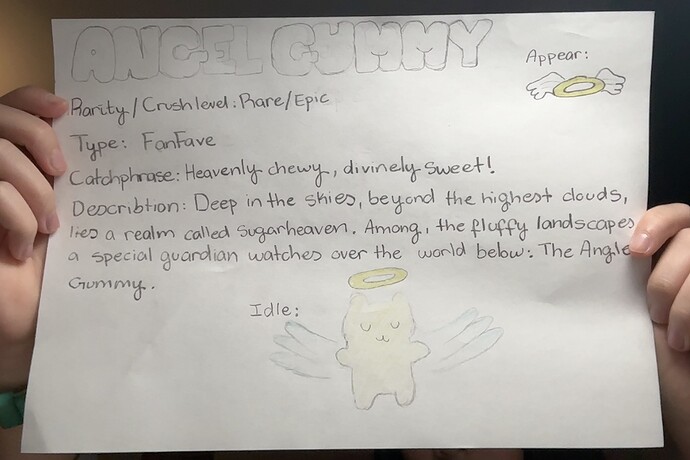 ANGEL GUMMY
Appear:
Rarity/Crush level: Rare/Epic
Type: FanFave
Catchphrase: Heavenly chewy, divinely sweet!
Describtion: Deep in the skies, beyond the highest clouds,
lies a realm called sugarheaven. Among, the fluffy landscapes
a special guardian watches over the world below: The Angle
Gummy.
Idle: